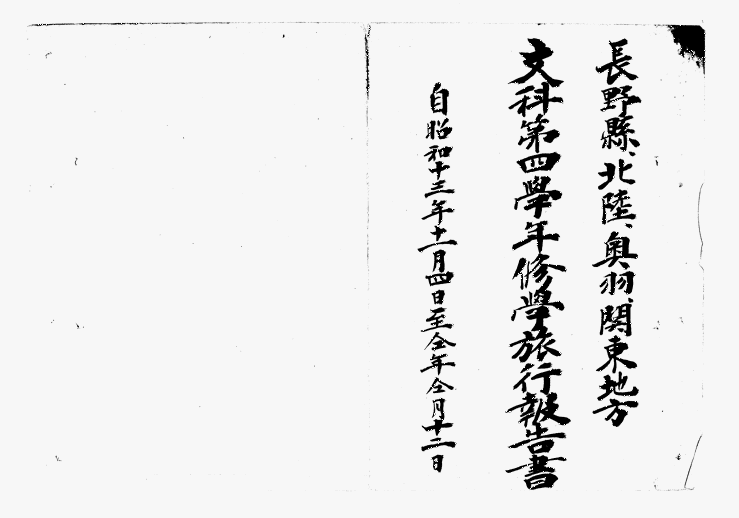 長野縣、北陸、奥羽、関東地方
文科第四學年修學旅行報告書
自昭和十三年十一月四日至仝年仝月十二日